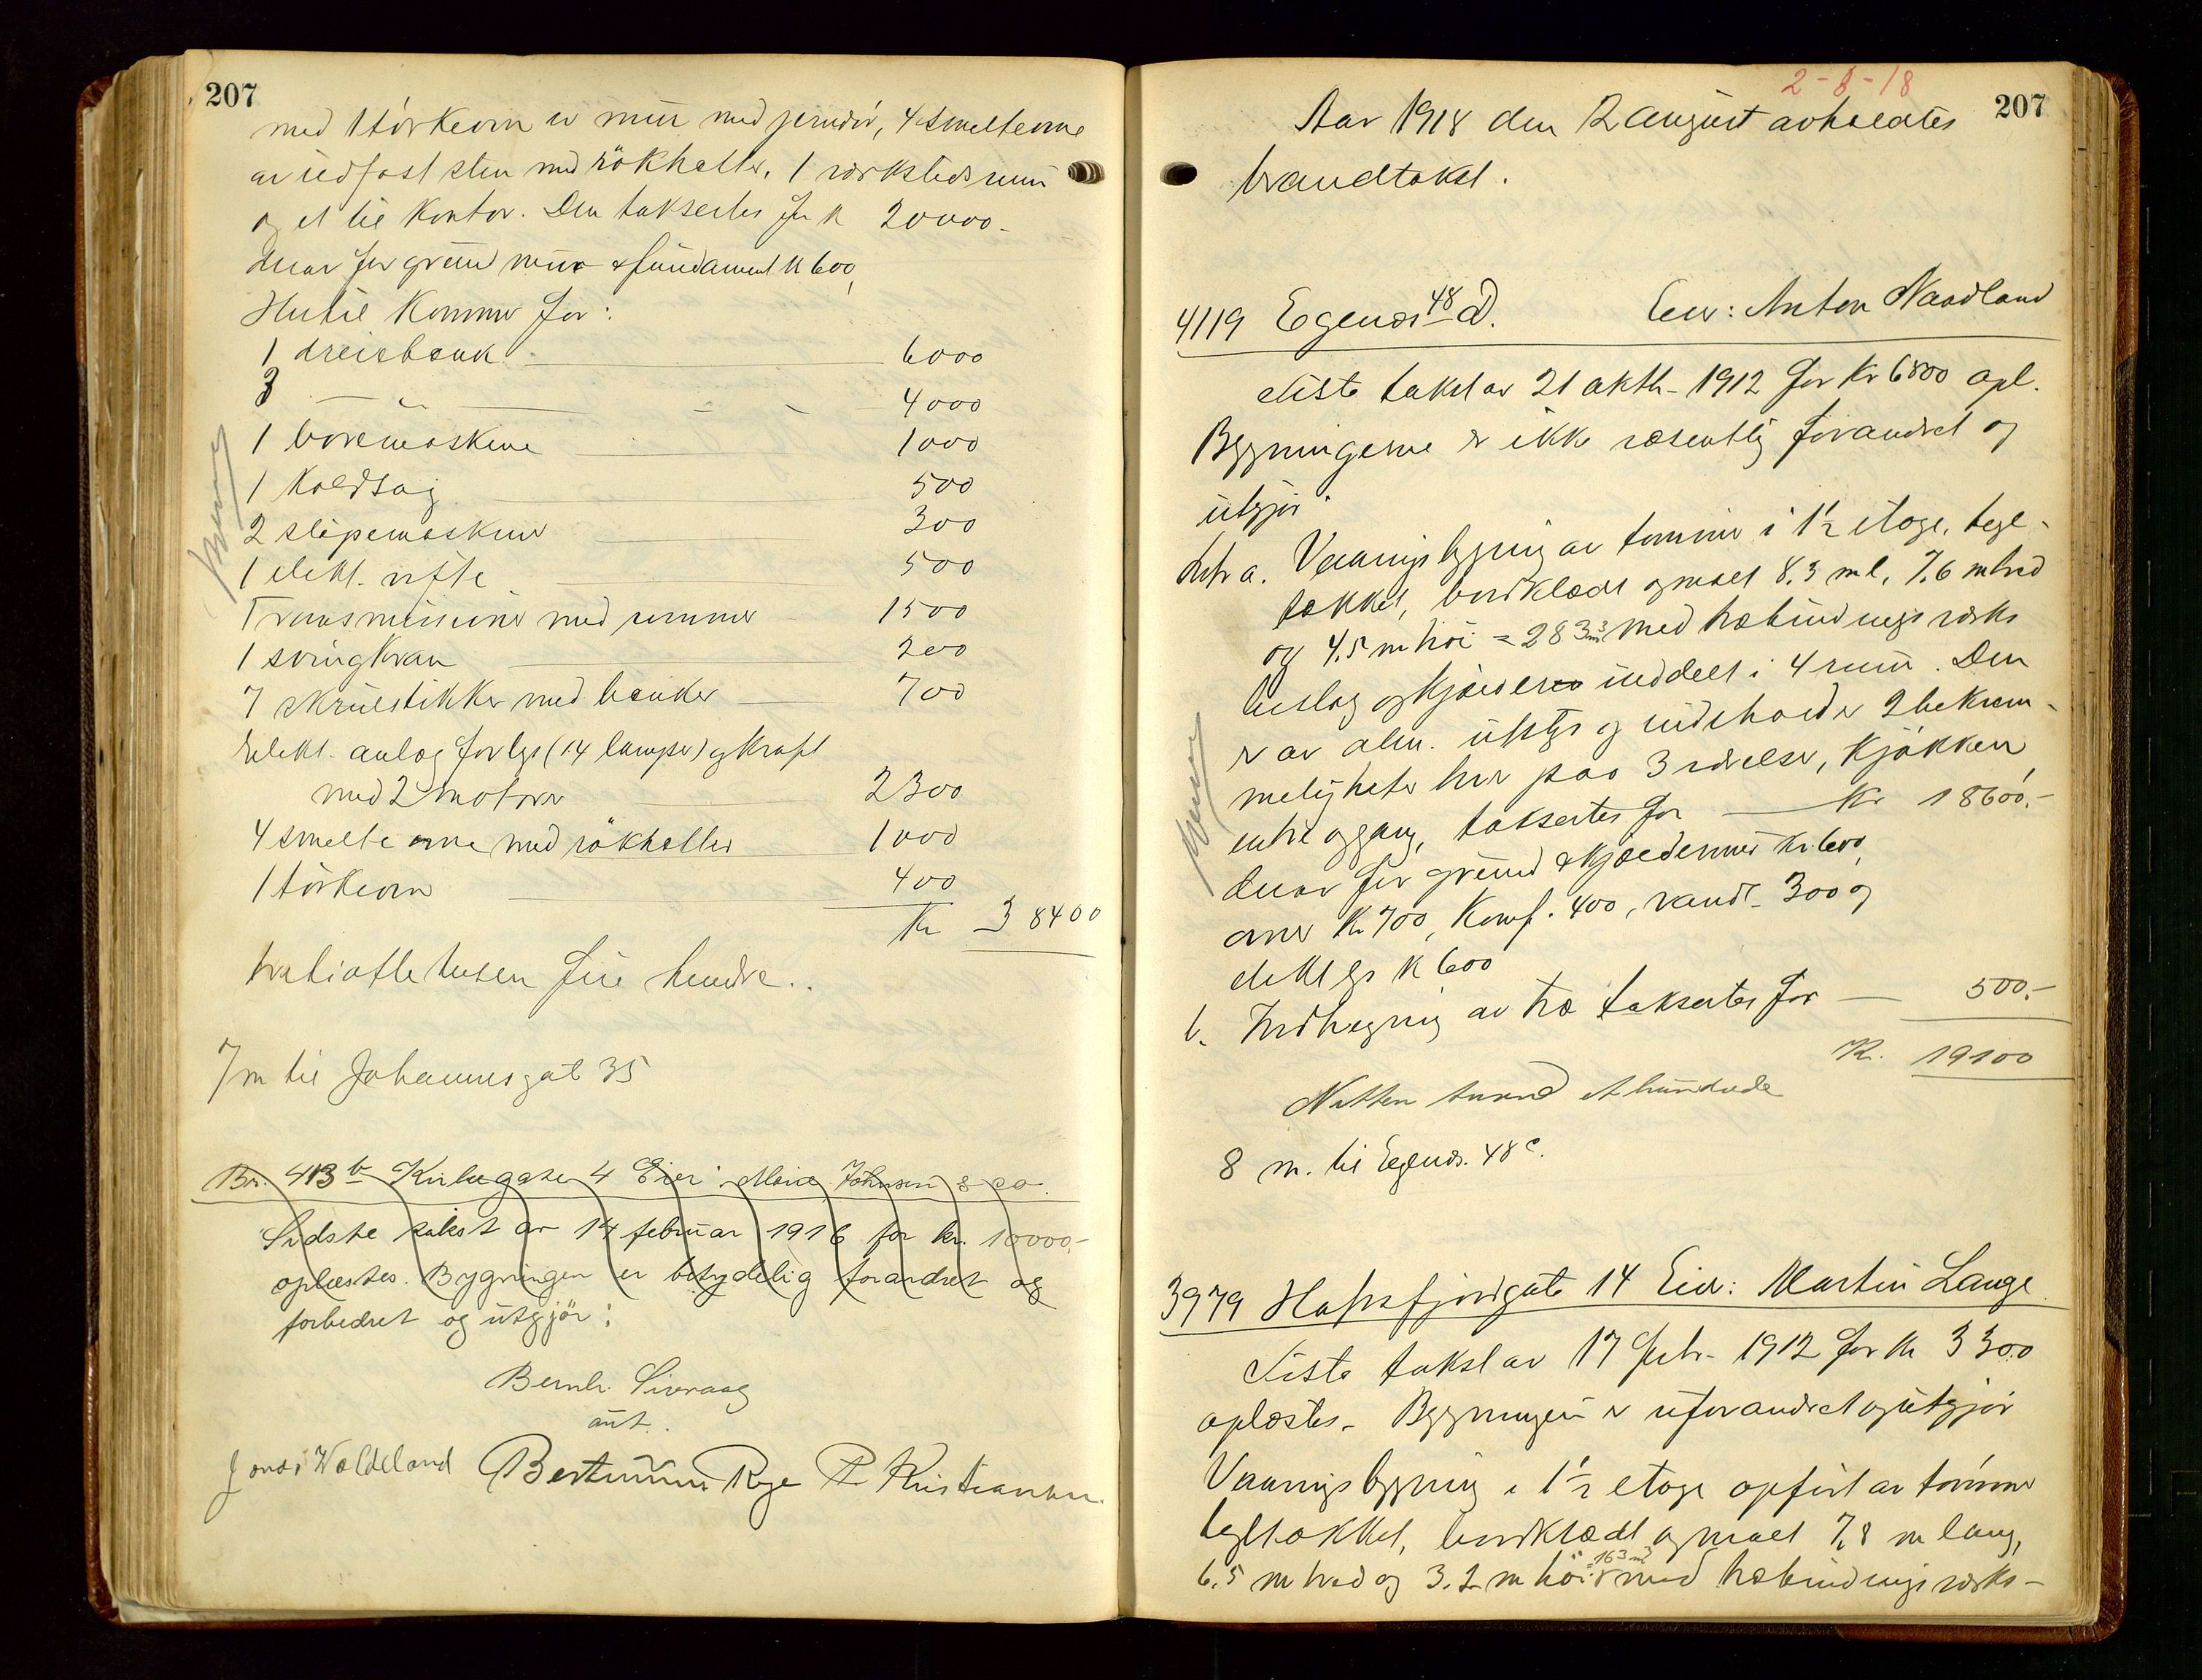 207
med 1 törkeovn av mur med jerndör, 4 smelteovne
av ildfast sten med rökhetter, 1 verkstedsrum
og et til kontor. Den taksertes for kr 20000.-
derav for grundmur & fundament kr 600,
Hertil kommer for:
1 dreiebænk 6000
3 — " — 4000
1 boremaskine 1000
1 koldsag 500
2 slipemaskiner 300
1 elekt. vifte 500
Transmissioner med remmer 1500
1 svingkran 200
7 skruestikker med bænker 700
Elekt. anlæg for lys (14 lamper) og kraft
med 2 motorer 2300
4 smelteovne med rökhetter 1000
1 törkeovn 400
Kr 38400
Trettiottetusen firehundre..
7 m til Johannesgate 35
Br. 413 b Kirkegaten 4 Eier: Marie Johnsen & co.
Sidste takst av 14 februar 1916 for kr. 10000.-
oplæstes. Bygningen er betydelig forandret og
forbedret og utgjör:
Bernh. Sivraag
ant.
Jonas Woldeland Bertinius Rege P. Kristiansen.
2-8-18
207
Aar 1918 den 2 august avholdtes
brandtakst.
4119 Egenæs 48 d. Eier: Anton Naadland
Siste takst av 21 oktb. 1912 for kr 6800 opl.
Bygningerne er ikke væsentlig forandret og
utgjör:
Litr a. Vaaningsbygning av tømmer i 1½ etage, tegl-
tækket, bordklædt og maalt 8.3 m l., 7.6 m bred
og 4.5 m höi = 283 m³ med træbindingsverks
beslag og kjælder inddelt i 4 rum. Den
er av alm. utstyr og indeholder 2 bekvem-
meligheter hver paa 3 værelser, kjøkken
entre og gang, taksertes for kr 18600.-
derav for grund & kjældermur kr. 600,
ovner kr 700, komf. 400, vandl. 300 og
elekt lys kr 600
b. Indhegning av træ taksertes for 500.-
Kr. 19100
Nitten tusend et hundrede
8 m. til Egenæs. 48 c.
3979 Hafrsfjordgate 14 Eier: Martin Lange.
Siste takst av 17 febr. 1912 for kr 3300
oplæstes. Bygningen er uforandret og utgjör
Vaaningsbygning i 1½ etage opført av tømmer
tegltækket, bordklædt og maalt 7,8 m lang,
6.5 m bred og 3.2 m höi = 163 m³ med træbindingsverks-